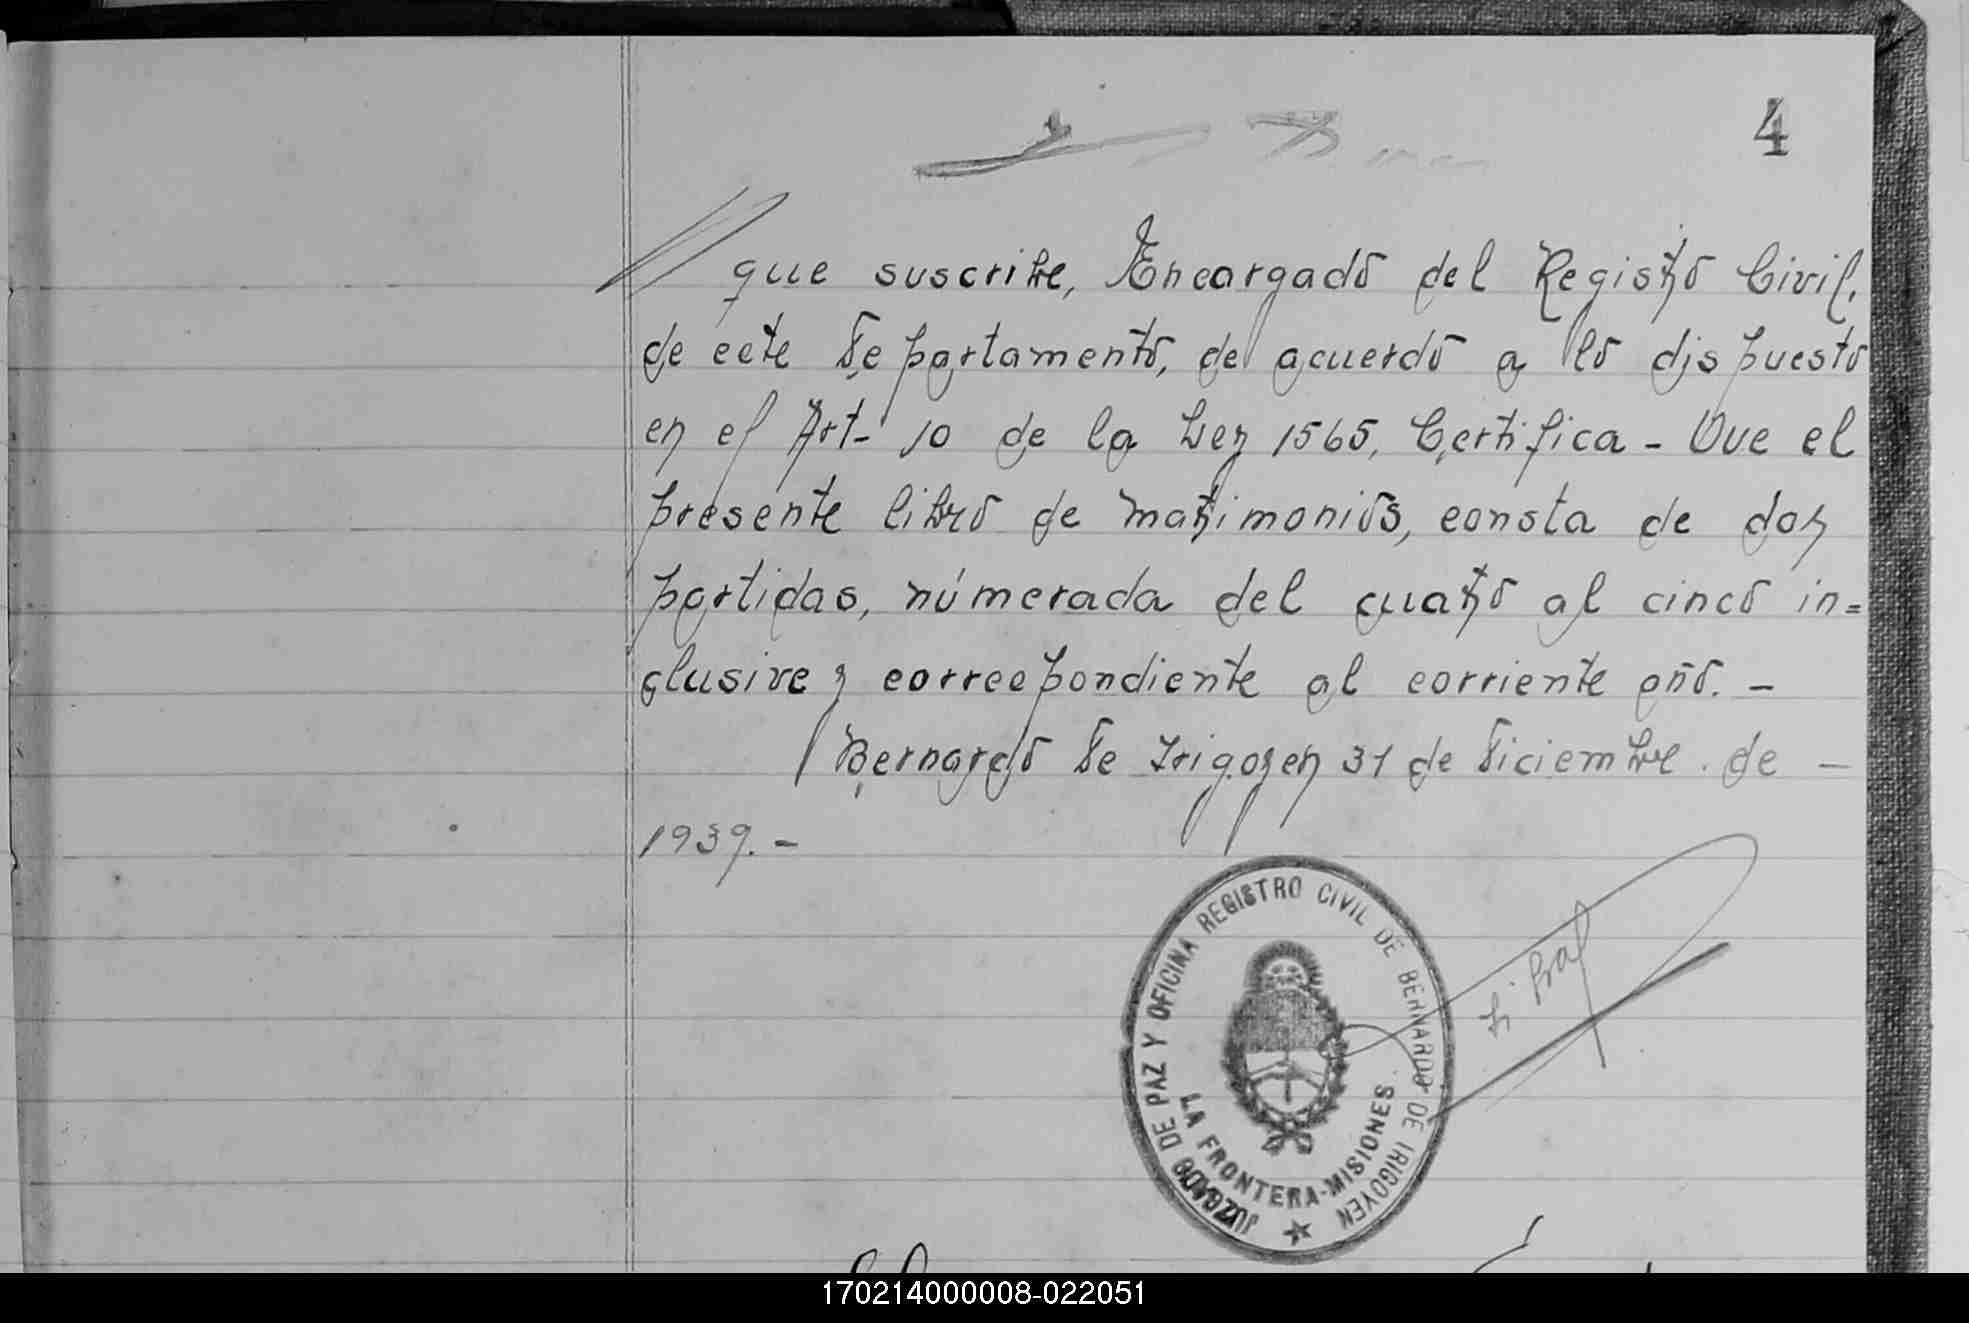 4
que suscribe, Encargado del Registro Civil,
de este Departamento, de acuerdo a lo dispuesto
en el Art- 10 de la Ley 1565, Certifica - Que el
presente libro de matrimonios, consta de dos
partidas, númerada del cuatro al cinco in=
clusive y correspondiente al corriente año. -
Bernardo de Irigoyen 31 de Diciembre. de -
1939. -
JUZGADO DE PAZ Y OFICINA REGISTRO CIVIL DE BERNARDO DE IRIGOYEN
LA FRONTERA-MISIONES
170214000008-022051